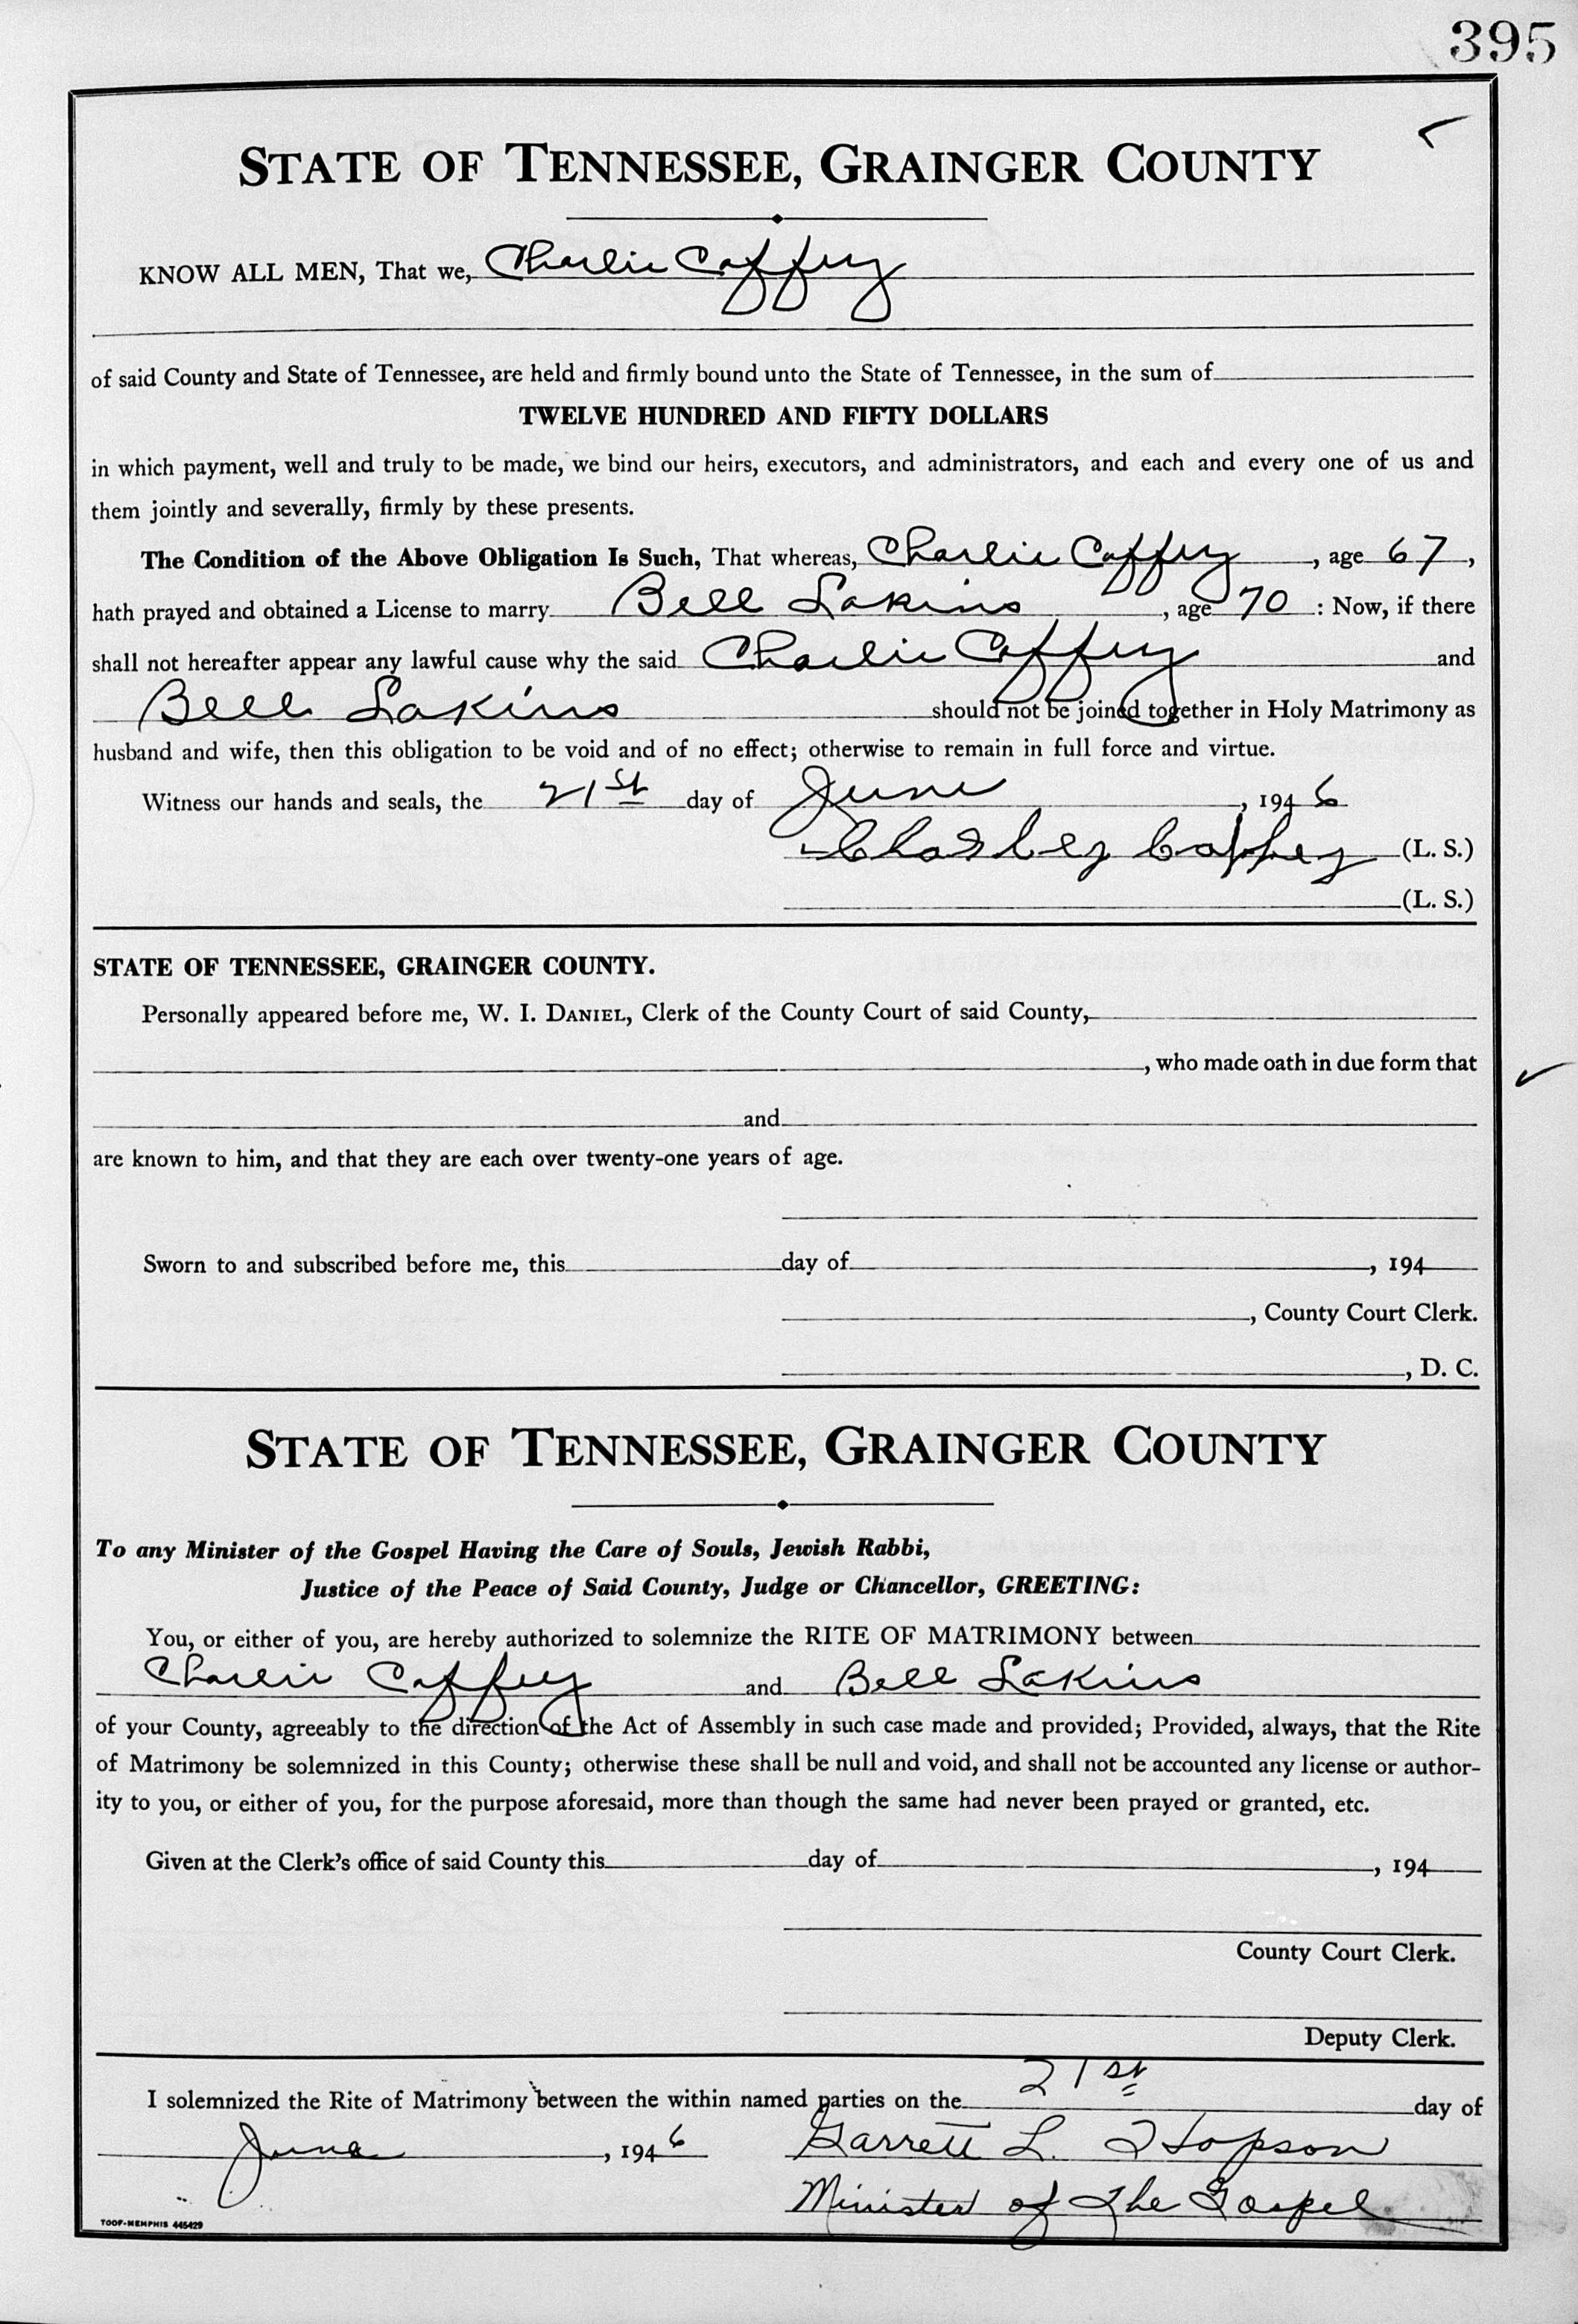 395
STATE OF TENNESSEE, GRAINGER COUNTY
KNOW ALL MEN, That we, Charlie Caffey
of said County and State of Tennessee, are held and firmly bound unto the State of Tennessee, in the sum of
TWELVE HUNDRED AND FIFTY DOLLARS
in which payment, well and truly to be made, we bind our heirs, executors, and administrators, and each and every one of us and
them jointly and severally, firmly by these presents.
The Condition of the Above Obligation Is Such, That whereas, Charlie Caffey, age 67,
hath prayed and obtained a License to marry Bell Lakins, age 70 : Now, if there
shall not hereafter appear any lawful cause why the said Charlie Caffey and
Bell Lakins should not be joined together in Holy Matrimony as
husband and wife, then this obligation to be void and of no effect; otherwise to remain in full force and virtue.
Witness our hands and seals, the 21st day of June, 1946
Charley Caffey (L. S.)
(L. S.)
STATE OF TENNESSEE, GRAINGER COUNTY.
Personally appeared before me, W. I. DANIEL, Clerk of the County Court of said County,
, who made oath in due form that
and
are known to him, and that they are each over twenty-one years of age.
Sworn to and subscribed before me, this day of , 194
, County Court Clerk.
, D. C.
STATE OF TENNESSEE, GRAINGER COUNTY
To any Minister of the Gospel Having the Care of Souls, Jewish Rabbi,
Justice of the Peace of Said County, Judge or Chancellor, GREETING:
You, or either of you, are hereby authorized to solemnize the RITE OF MATRIMONY between
Charlie Caffey and Bell Lakins
of your County, agreeably to the direction of the Act of Assembly in such case made and provided; Provided, always, that the Rite
of Matrimony be solemnized in this County; otherwise these shall be null and void, and shall not be accounted any license or author-
ity to you, or either of you, for the purpose aforesaid, more than though the same had never been prayed or granted, etc.
Given at the Clerk's office of said County this day of , 194
County Court Clerk.
Deputy Clerk.
I solemnized the Rite of Matrimony between the within named parties on the 21st day of
June, 1946 Garrett L. Hopson
Minister of the Gospel
TOOF-MEMPHIS 445429